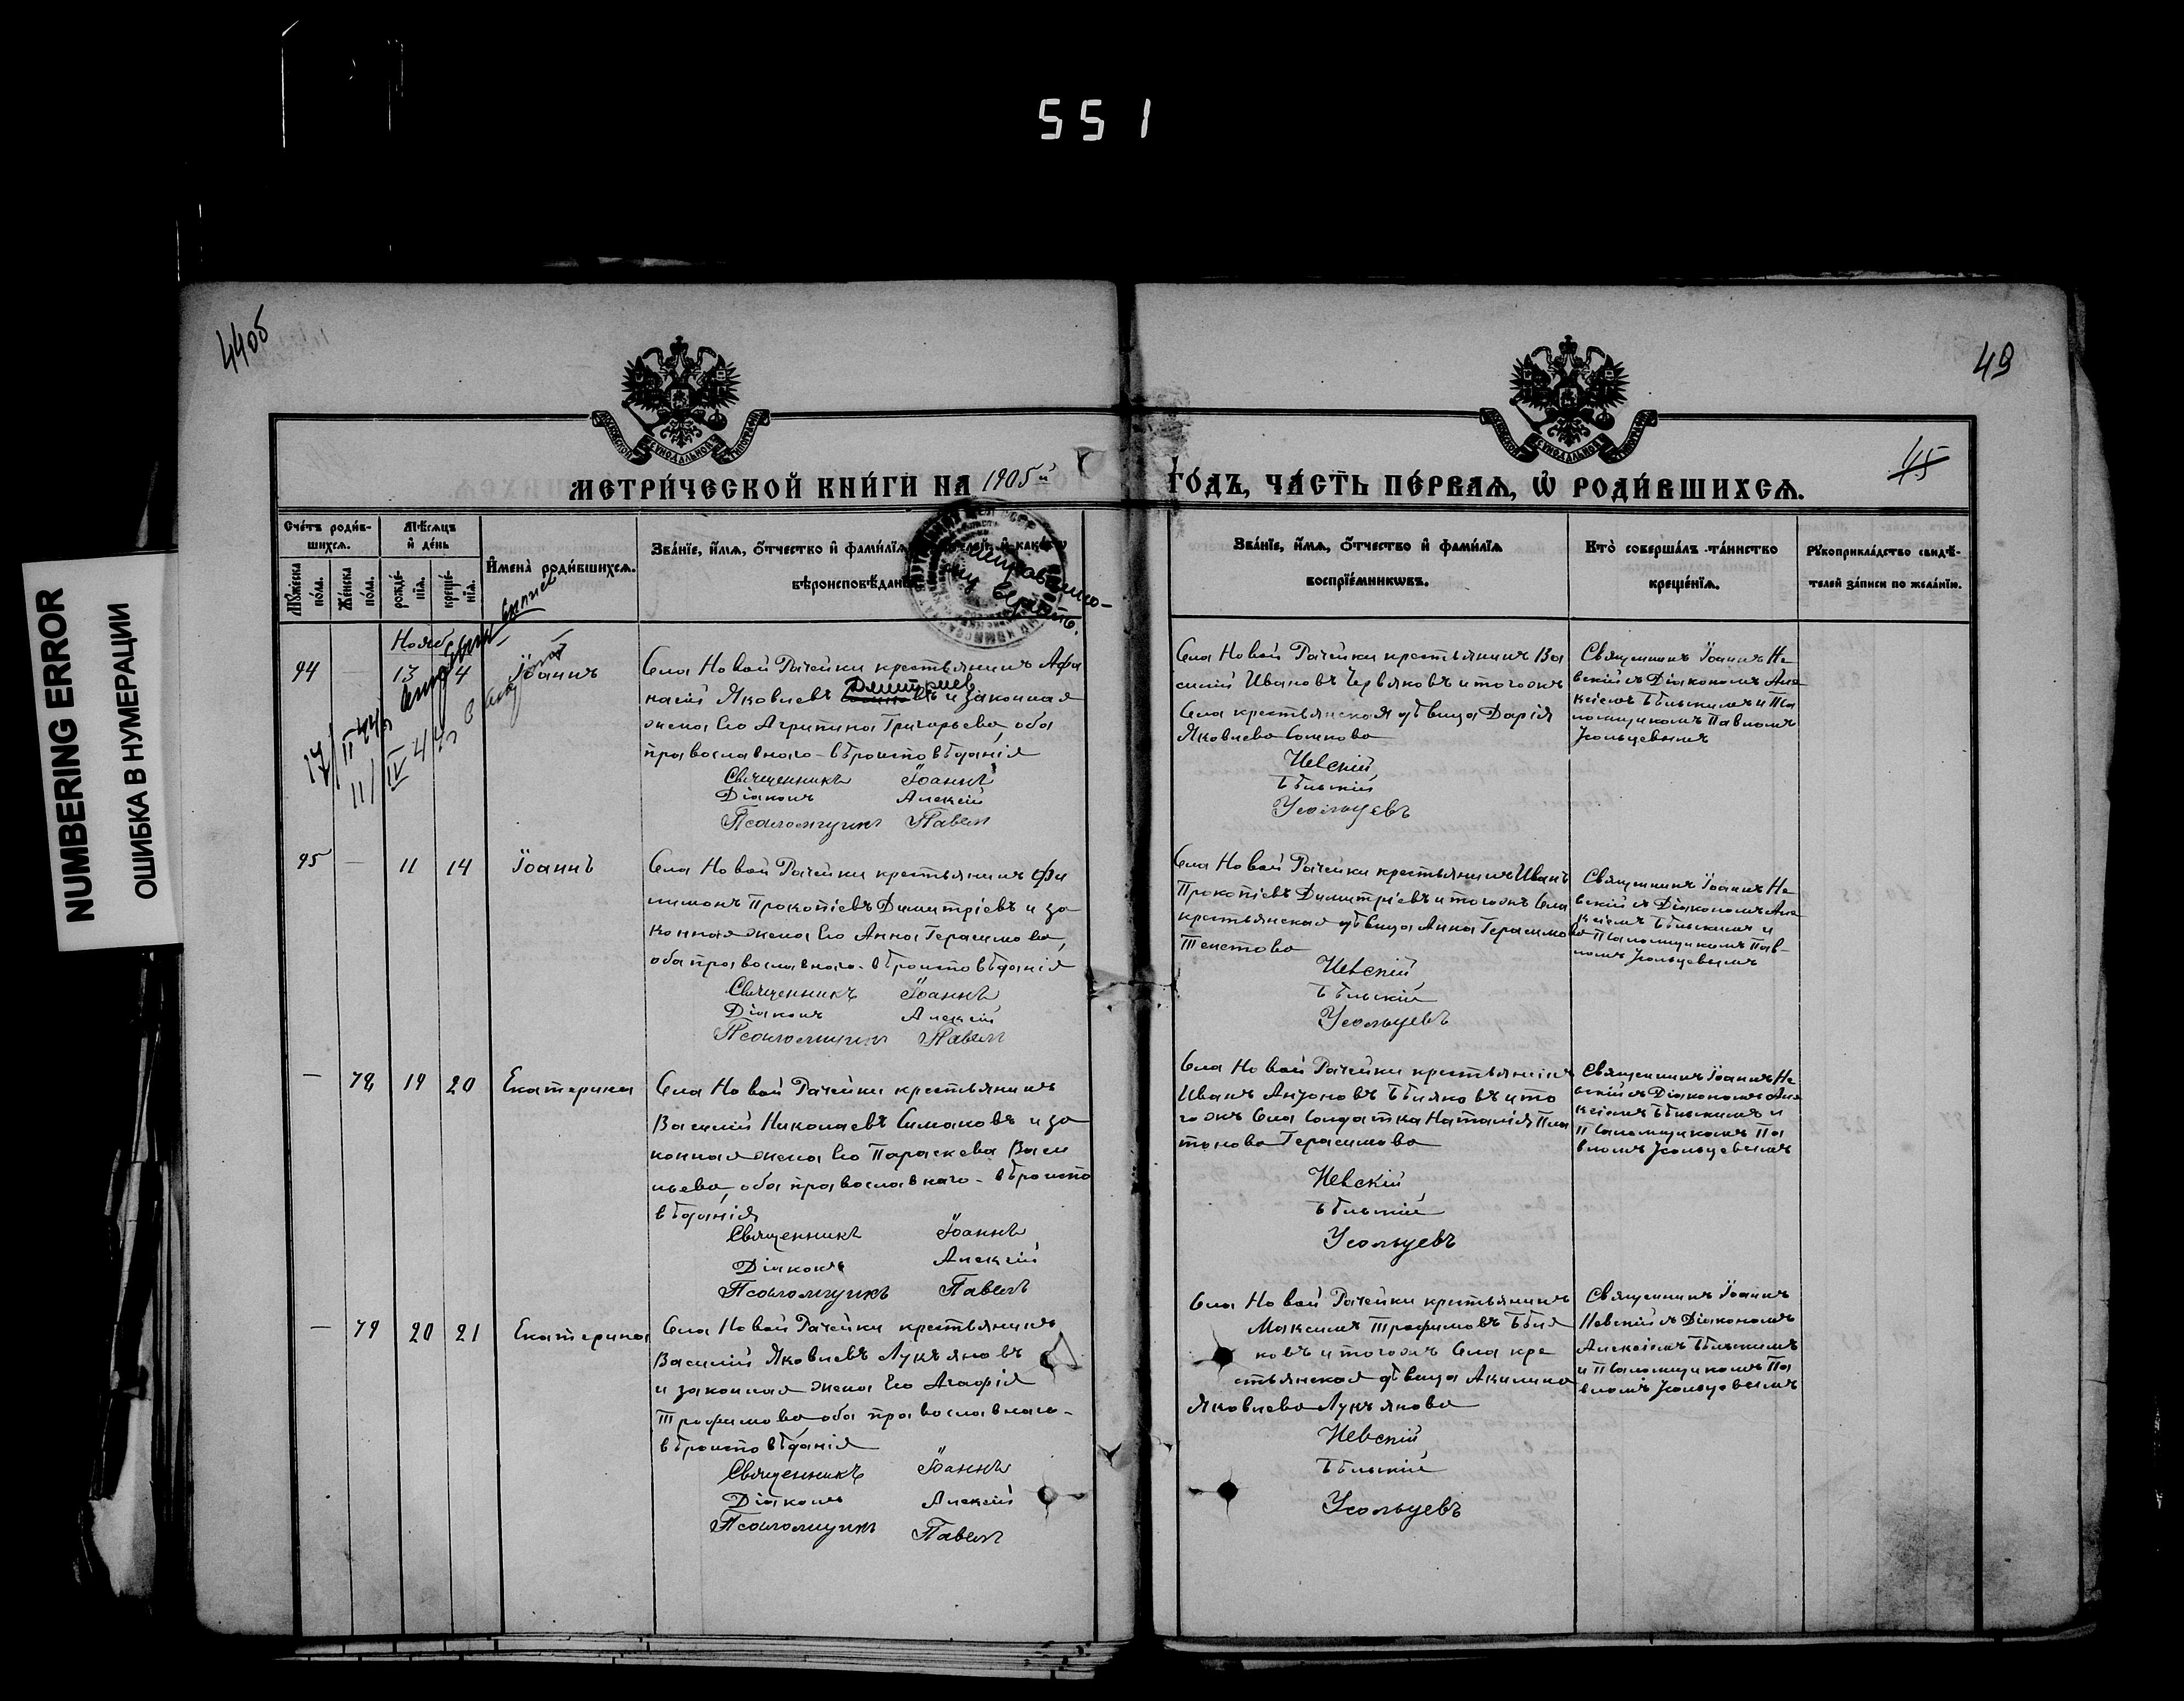 551
NUMBERING ERROR
ОШИБКА В НУМЕРАЦИИ
4405
49
45
МЕТРИ́ЧЕСКОЙ КНИ́ГИ НА 1905й
ГО́ДЪ, ЧА́СТЬ ПЕ́РВАѦ, Ѡ РОДИ́ВШИХСѦ.
Сче́тъ роди́в-
шихсѧ.
Мѣ́сѧцъ
и де́нь
Мꙋ́жеска по́ла.
Же́нска по́ла.
рожде́-нїѧ.
креще́-нїѧ.
И҆мена̀ роди́вшихсѧ.
Зва́нїе, и҆́мѧ, ѻ҆́тчество и҆ фами́лїѧ и҆ како́гѡ
вѣроисповѣ́данїѧ
Зва́нїе, и҆́мѧ, ѻ҆́тчество и҆ фами́лїѧ
воспрїе́мникѡвъ.
Кто̀ соверша́лъ та́инство
креще́нїѧ.
Рꙋкоприкла́дство свидѣ́-
телей за́писи по жела́нїю.
Ноябр
94 — 13 14 Іоаннъ
Села Новой Рачейки крестьянинъ Афа
насій Яковлевъ Дмитриев и законная
жена его Агрипина Григорьева, оба
православнаго-вѣроисповѣданія
Священникъ Іоаннъ
Діаконъ Алексій
Псаломщикъ Павелъ
Села Новой Рачейки крестьянинъ Ва
силій Ивановъ Червяковъ и тогожъ
Села крестьянская дѣвица Дарія
Яковлева Сомкова
Невскій
Бѣльскій
Усольцевъ
Священникъ Іоаннъ Не
вскій съ Діакономъ Але
ксіемъ Бѣльскимъ и Пса
ломщикомъ Павломъ
Усольцевымъ
95 — 11 14 Іоаннъ
Села Новой Рачейки крестьянинъ Фи
лимонъ Прокопіевъ Димитріевъ и за
конная жена его Анна Герасимова,
оба православнаго-вѣроисповѣданія
Священникъ Іоаннъ
Діаконъ Алексій
Псаломщикъ Павелъ
Села Новой Рачейки крестьянинъ Иванъ
Прокопіевъ Димитріевъ и тогожъ Села
крестьянская дѣвица Анна Герасимова
Невскій
Бѣльскій
Усольцевъ
Священникъ Іоаннъ Не
вскій съ Діакономъ Але
ксіемъ Бѣльскимъ и
Псаломщикомъ Пав-
ломъ Усольцевымъ
— 78 19 20 Екатерина
Села Новой Рачейки крестьянинъ
Василій Николаевъ Симаковъ и за
конная жена его Параскева Васи
льева, оба православнаго-вѣроиспо
вѣданія
Священникъ Іоаннъ
Діаконъ Алексій
Псаломщикъ Павелъ
Села Новой Рачейки крестьянинъ
Иванъ Антоновъ Бѣляковъ и то
гожъ Села солдатка Наталія Пла
тонова Герасимова
Невскій
Бѣльскій
Усольцевъ
Священникъ Іоаннъ Не
вскій съ Діакономъ Але
ксіемъ Бѣльскимъ и
Псаломщикомъ Па
вломъ Усольцевымъ
— 79 20 21 Екатерина
Села Новой Рачейки крестьянинъ
Василій Яковлевъ Лукъяновъ
и законная жена его Агафія
Трофимова, оба православнаго-
вѣроисповѣданія
Священникъ Іоаннъ
Діаконъ Алексій
Псаломщикъ Павелъ
Села Новой Рачейки крестьянинъ
Максимъ Трофимовъ Бѣля
ковъ и тогожъ Села кре
стьянская дѣвица Акилина
Яковлева Лукъянова
Невскій
Бѣльскій
Усольцевъ
Священникъ Іоаннъ
Невскій съ Діакономъ
Алексіемъ Бѣльскимъ
и Псаломщикомъ Па
вломъ Усольцевымъ